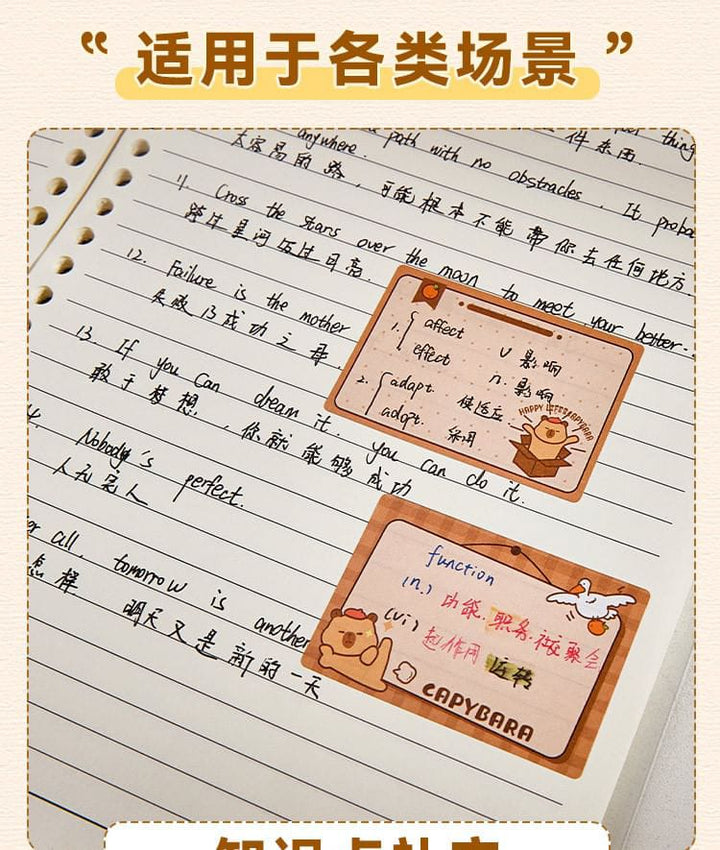 “ 适用于各类场景 ”
anywhere. path with no obstacles. It proba
太容易的路，可能根本不能带你去任何地方.
11. Cross the stars over the moon to meet your better...
跨过星河迈过月亮.
12. Failure is the mother
失败乃成功之母.
13 If you can dream it. you can do it.
敢于梦想，你就能够成功
Nobody's perfect.
人无完人
er all, tomorrow is another
怎样 明天又是新的一天
1. affect v 影响
effect n. 影响
2. adapt. 使适应
adopt. 采用
HAPPY LIFE CAPYBARA
function
(n.) 功能.职务.社交聚会
(vi) 起作用 运转
CAPYBARA
知识点补充